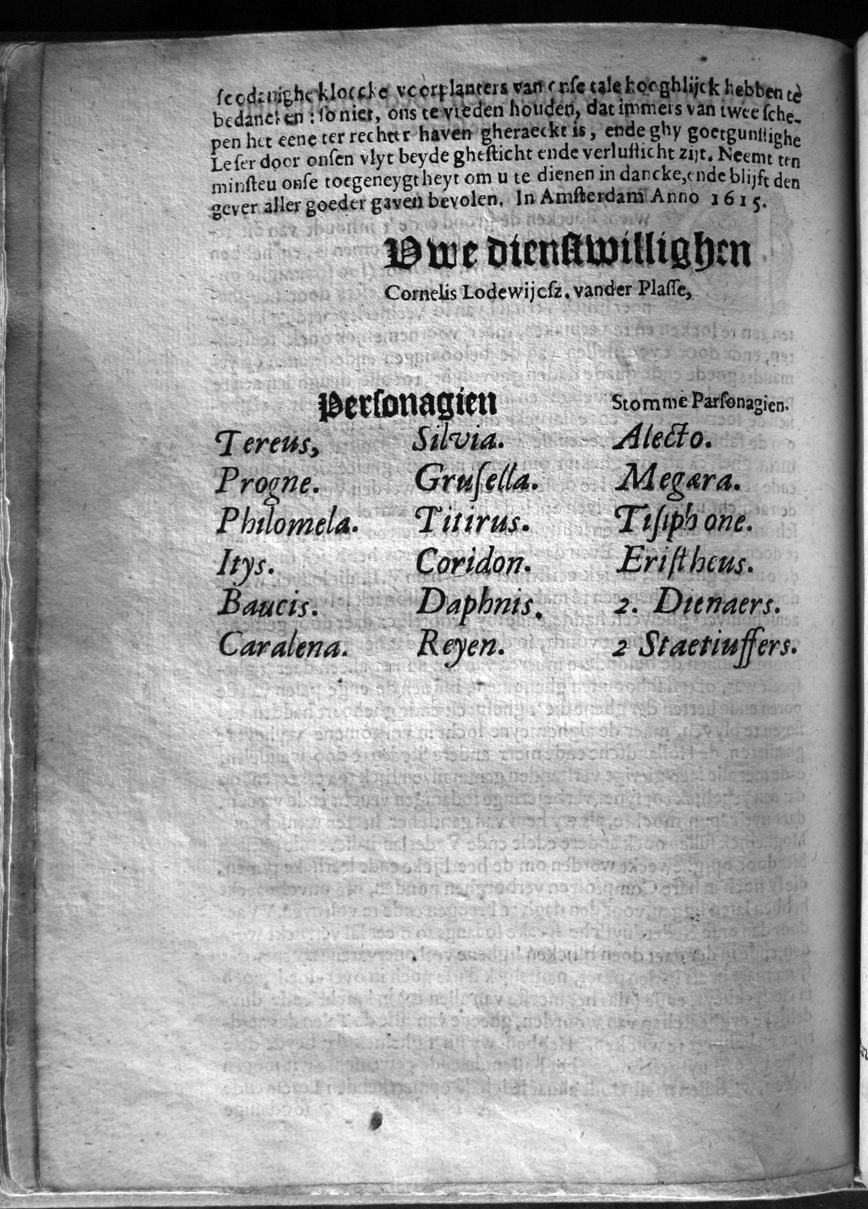 soodanighe kloecke voorplanters van onse tale hooghlijck hebben tè
bedancken: so niet, ons te vreden houden, dat immers van twee sche-
pen het eene ter rechter haven gheraeckt is, ende ghy goetgunstighe
Leser door onsen vlyt beyde ghesticht ende verlusticht zijt. Neemt ten
minsteu onse toegeneygtheyt om u te dienen in dancke, ende blijft den
gever aller goeder gaven bevolen. In Amsterdam Anno 1615.
Vwe dienstwillighen
Cornelis Lodewijcsz. vander Plasse,
Personagien
Stomme Parsonagien.
Tereus, Silvia. Alecto.
Progne. Grusella. Megæra.
Philomela. Titirus. Tisiphone.
Itys. Coridon. Eristheus.
Baucis. Daphnis. 2. Dienaers.
Caralena. Reyen. 2 Staetiuffers.